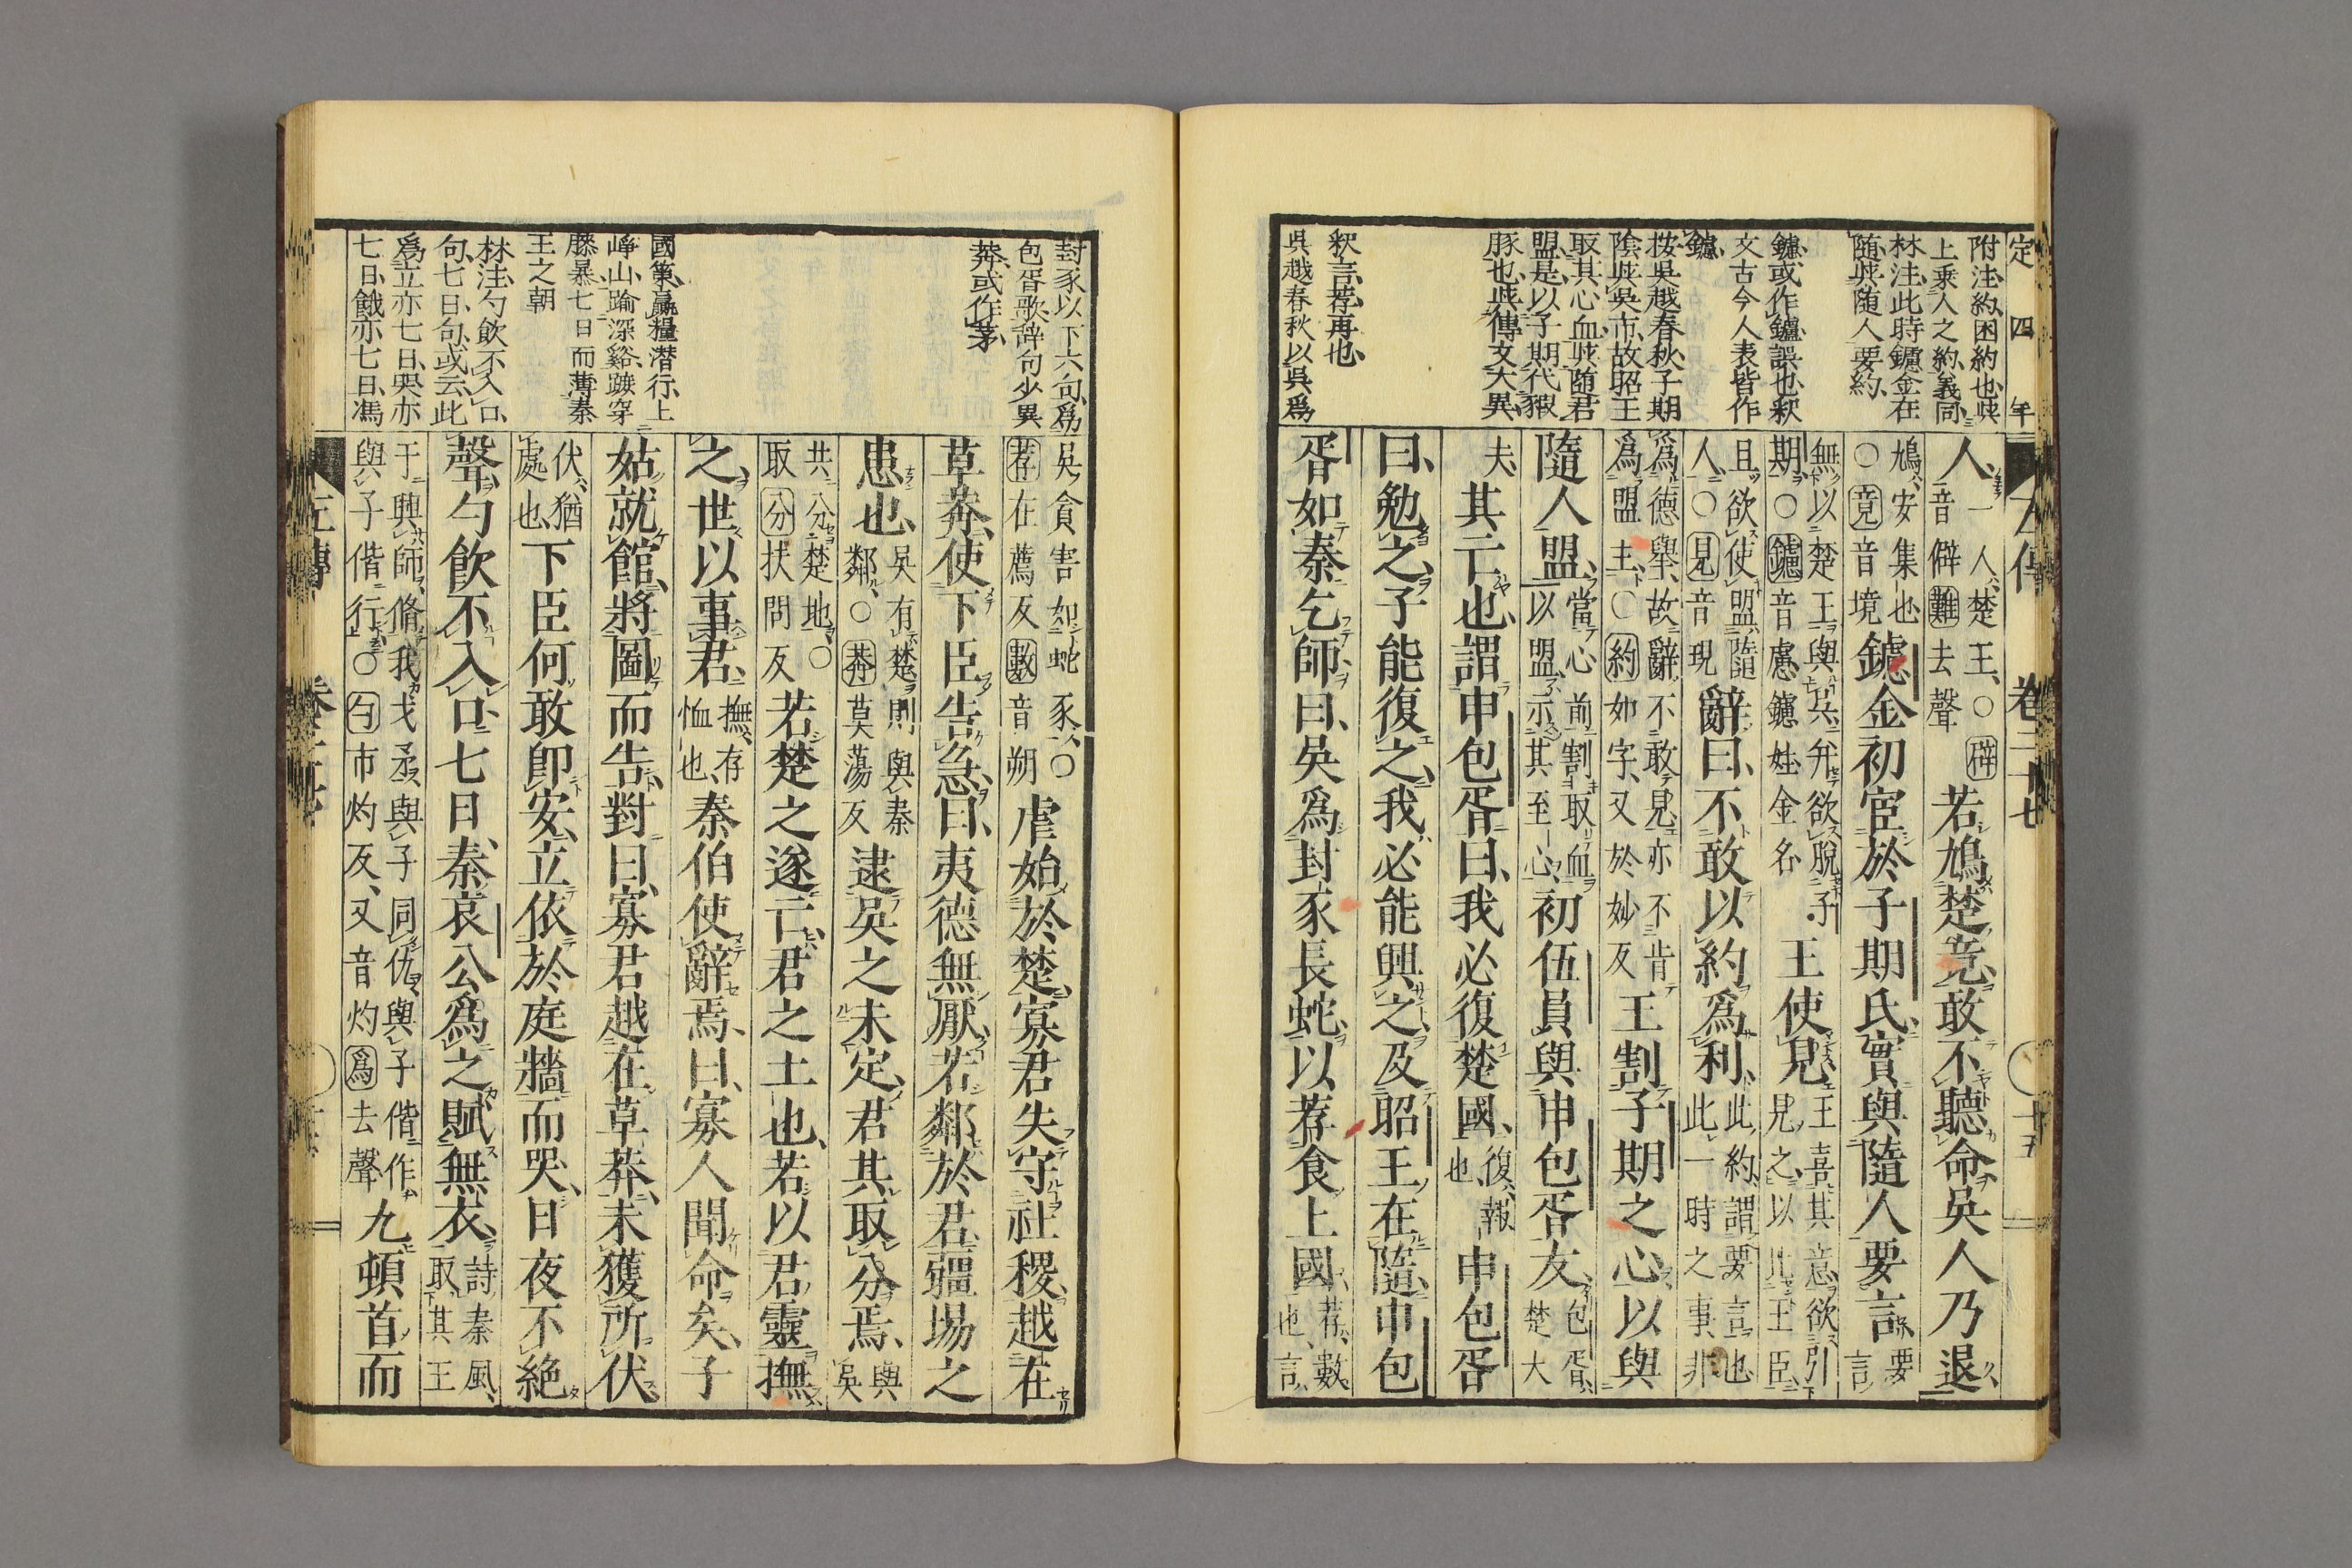 定四年
附注、約、困約也、與
上乘人之約、義同、
林注、此時鑢金在
隨、與隨人要約、
鑢、或作鑪、誤也、釈
文古今人表皆作
鑢、
按呉越春秋、子期
陰與呉市、故昭王
取其心血、與隨君
盟、是以子期代豭
豚也、與傳文大異、
釈言、荐、再也、
呉越春秋以呉爲
左傳 卷二十七 十五
人、一人、楚王、○辟音僻難去聲若鳩楚竟、敢不聽命、吳人乃退、
鳩、安集也○竟音境鑢金初宦於子期氏、實與隨人要言、要言
無以楚王與吳、并欲脫子期、○鑢音慮、鑢姓、金名王使見、王喜其意、欲引見之、以比王臣、
且欲使盟隨人、○見音現辭曰、不敢以約爲利、此約、謂要言也此一時之事、非
爲德舉、故辭不敢見、亦不肯爲盟主、○約如字、又於妙反王割子期之心、以與
隨人盟、當心前割取血以盟、示其至心、初伍員與申包胥友、包胥、楚大
夫、其亡也、謂申包胥曰、我必復楚國、復、報也申包胥
曰、勉之、子能復之、我必能興之、及昭王在隨、申包
胥如秦乞師、曰、吳爲封豕長蛇、以荐食上國、荐、數也、言、
封豕以下六句、爲
包胥歌辞、句少異
莽、或作茅、
國策、贏糧潜行、上
崢山、踰深谿、蹠穿
膝暴、七日而薄秦
王之朝
林注、勺飲不入口、
句、七日、句、或云、此
爲立亦七日、哭亦
七日、餓亦七日、馮
吳貪害如蛇豕、○荐在薦反數音朔虐始於楚、寡君失守社稷、越在
草莽、使下臣告急、曰、夷德無厭、若鄰於君、疆埸之
患也、吳有楚、則與秦鄰、○莽莫蕩反逮吳之未定、君其取分焉、與吳
共分楚地、○取分扶問反若楚之遂亡、君之土也、若以君靈撫
之、世以事君、撫、存恤也、秦伯使辭焉、曰、寡人聞命矣、子
姑就館、將圖而告、對曰、寡君越在草莽、未獲所伏、
伏、猶處也、下臣何敢卽安、立依於庭牆而哭、日夜不絕
聲、勺飮不入口、七日、秦哀公爲之賦無衣、詩秦風、取其王
于興師、脩我戈矛、與子同仇、與子偕作、與子偕行、○勺市灼反、又音灼爲去聲九頓首而
左傳